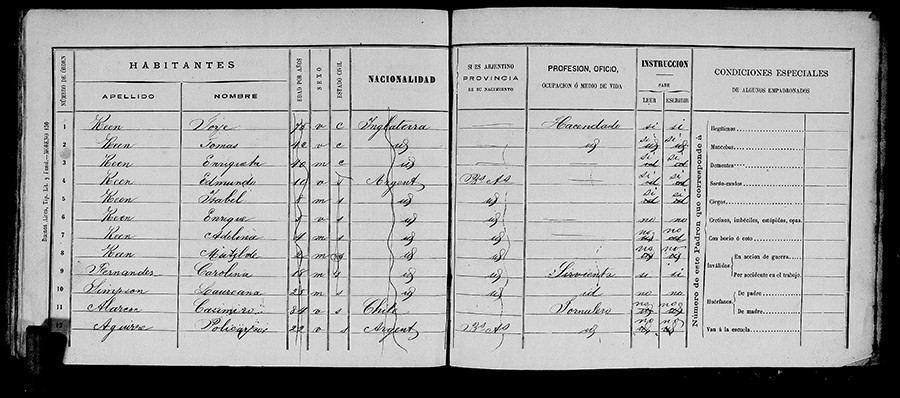 HABITANTES
NÚMERO DE ÓRDEN
APELLIDO NOMBRE EDAD POR AÑOS SEXO ESTADO CIVIL NACIONALIDAD SI ES ARJENTINO PROVINCIA DE SU NACIMIENTO PROFESION, OFICIO, OCUPACION Ó MEDIO DE VIDA INSTRUCCION SABE LEER ESCRIBIR
CONDICIONES ESPECIALES
DE ALGUNOS EMPADRONADOS
1 Keen José 76 v c Inglaterra Hacendado si si
2 Keen Tomas 42 v c id id si si
3 Keen Enriqueta 40 m c id si si
4 Keen Edmundo 10 v s Argent Bs As si si
5 Keen Isabel 8 m s id id si si
6 Keen Enrique 5 v s id id no no
7 Keen Adelina 4 m s id id no no
8 Keen Matilde 2 m s id id no no
9 Fernandes Carolina 18 m s id id Sirvienta si si
10 Simpson Laureana 25 m s id id id no no
11 Alarcon Casimiro 34 v s Chile Jornalero no no
12 Aguirre Policarpo 22 v s Argent Bs As id no no
Número de este Padron que corresponde á
Ilegítimos
Mancebos
Dementes
Sordo-mudos
Ciegos
Cretinos, imbéciles, estúpidos, opas
Con bocio ó coto
Inválidos En accion de guerra
Por accidente en el trabajo
Huérfanos De padre
De madre
Van á la escuela